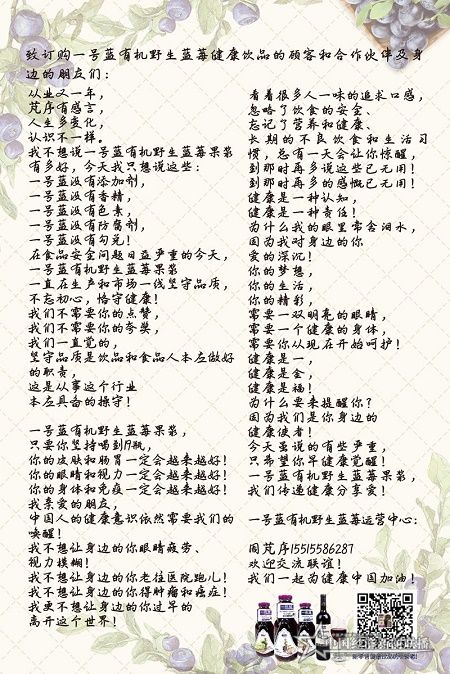 致订购一号蓝有机野生蓝莓健康饮品的顾客和合作伙伴及身
边的朋友们：
从业又一年，
芃序有感言，
人生多变化，
认识不一样。
我不想说一号蓝有机野生蓝莓果浆
有多好，今天我只想说这些：
一号蓝没有添加剂，
一号蓝没有香精，
一号蓝没有色素，
一号蓝没有防腐剂，
一号蓝没有勾兑！
在食品安全问题日益严重的今天，
一号蓝有机野生蓝莓果浆
一直在生产和市场一线坚守品质，
不忘初心，恪守健康！
我们不需要你的点赞，
我们不需要你的夸奖，
我们一直觉的，
坚守品质是饮品和食品人本应做好
的职责，
这是从事这个行业
本应具备的操守！
一号蓝有机野生蓝莓果浆，
只要你坚持喝到19瓶，
你的皮肤和肠胃一定会越来越好！
你的眼睛和视力一定会越来越好！
你的身体和免疫一定会越来越好！
我亲爱的朋友，
中国人的健康意识依然需要我们的
唤醒！
我不想让身边的你眼睛疲劳、
视力模糊！
我不想让身边的你老往医院跑儿！
我不想让身边的你得肿瘤和癌症！
我更不想让身边的你过早的
离开这个世界！
看着很多人一味的追求口感，
忽略了饮食的安全、
忘记了营养和健康、
长期的不良饮食和生活习
惯，总有一天会让你惊醒，
到那时再多说这些已无用！
到那时再多的感慨已无用！
健康是一种认知，
健康是一种责任！
为什么我的眼里常含泪水，
因为我对身边的你
爱的深沉！
你的梦想，
你的生活，
你的精彩，
需要一双明亮的眼睛，
需要一个健康的身体，
需要你从现在开始呵护！
健康是一，
健康是金，
健康是福！
为什么要来提醒你？
因为我们是你身边的
健康使者！
今天虽说的有些严重，
只希望你早健康觉醒！
一号蓝有机野生蓝莓果浆，
我们传递健康分享爱！
一号蓝有机野生蓝莓运营中心：
周芃序15515586287
欢迎交流联谊！
我们一起为健康中国加油！